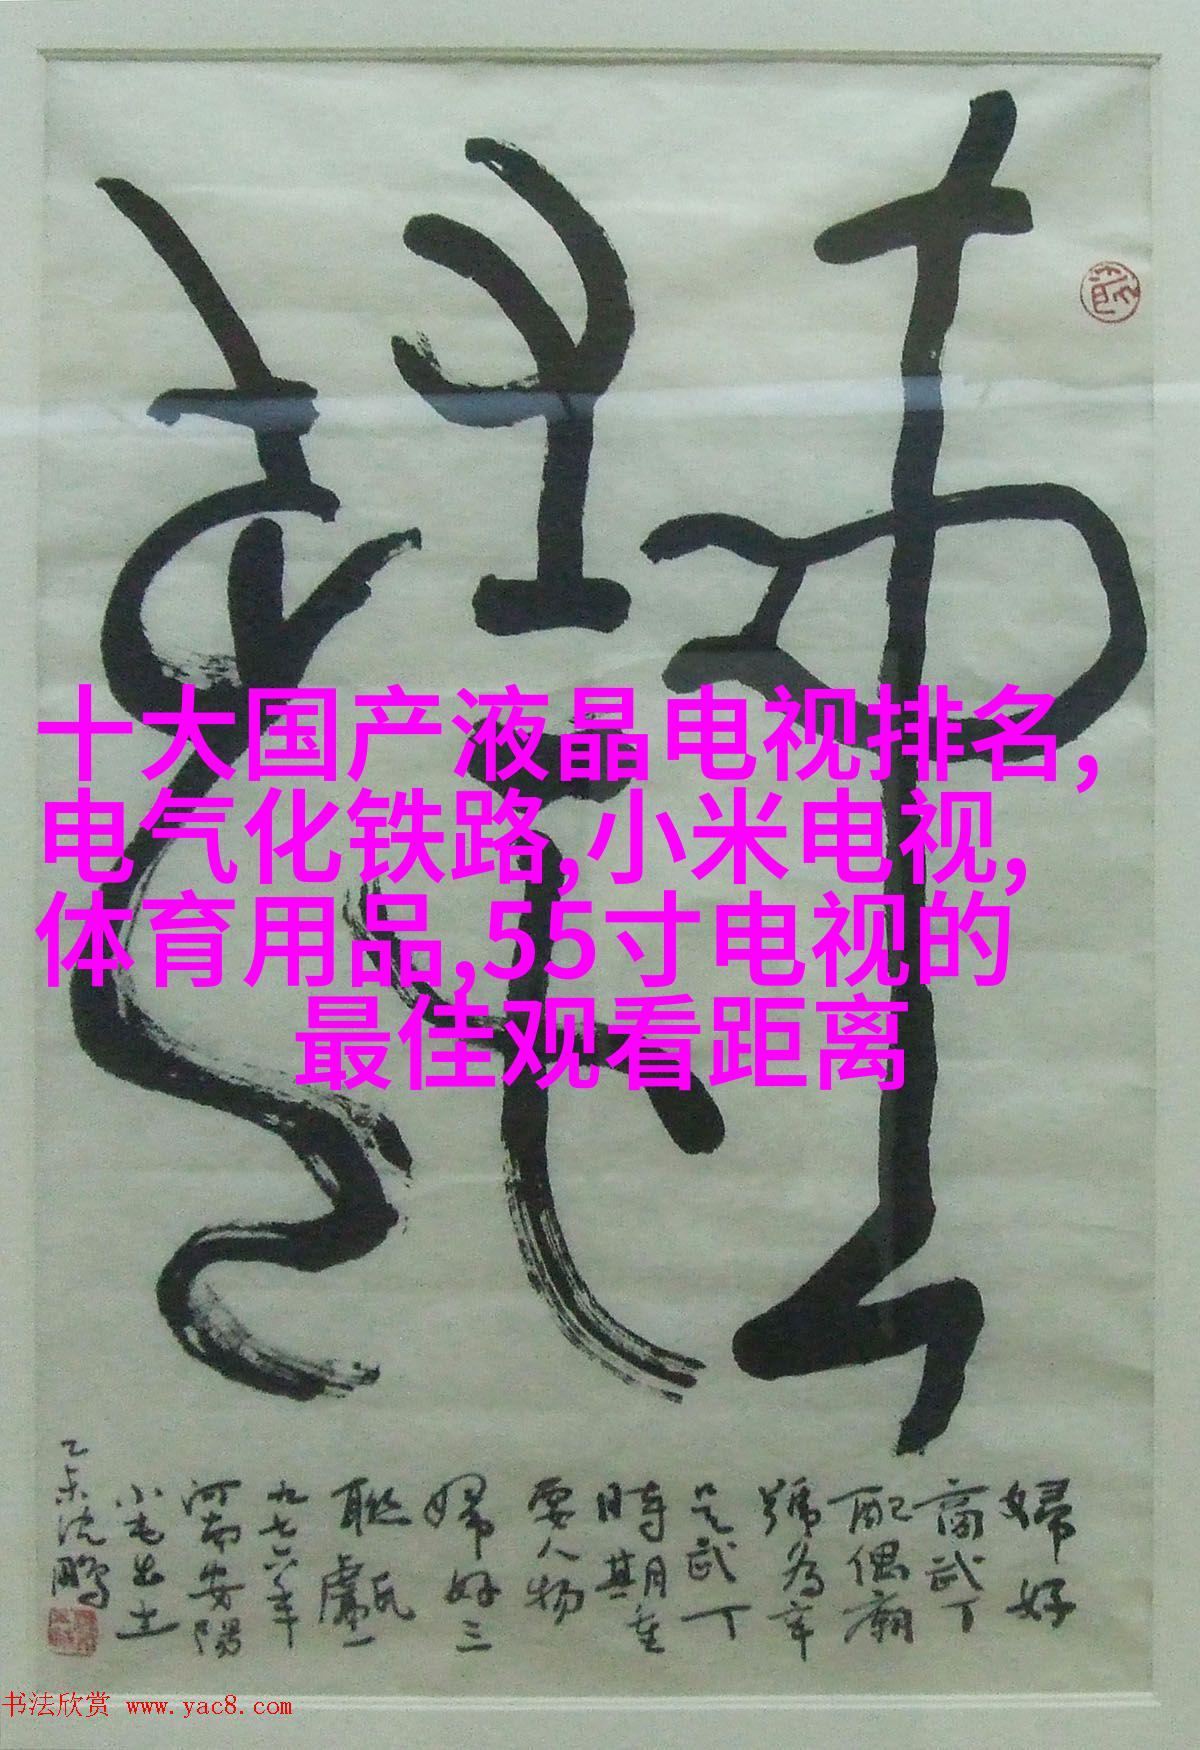 十大国产液晶电视排名,
电气化铁路,小米电视,
体育用品,55寸电视的
最佳观看距离
婦好
商武丁
配偶廟
號为辛
是武丁
時期重
要人物
婦好三
联甗一
九七六年
河南安陽
小屯出土
乙未沈鹏
书法欣赏 www.yac8.com